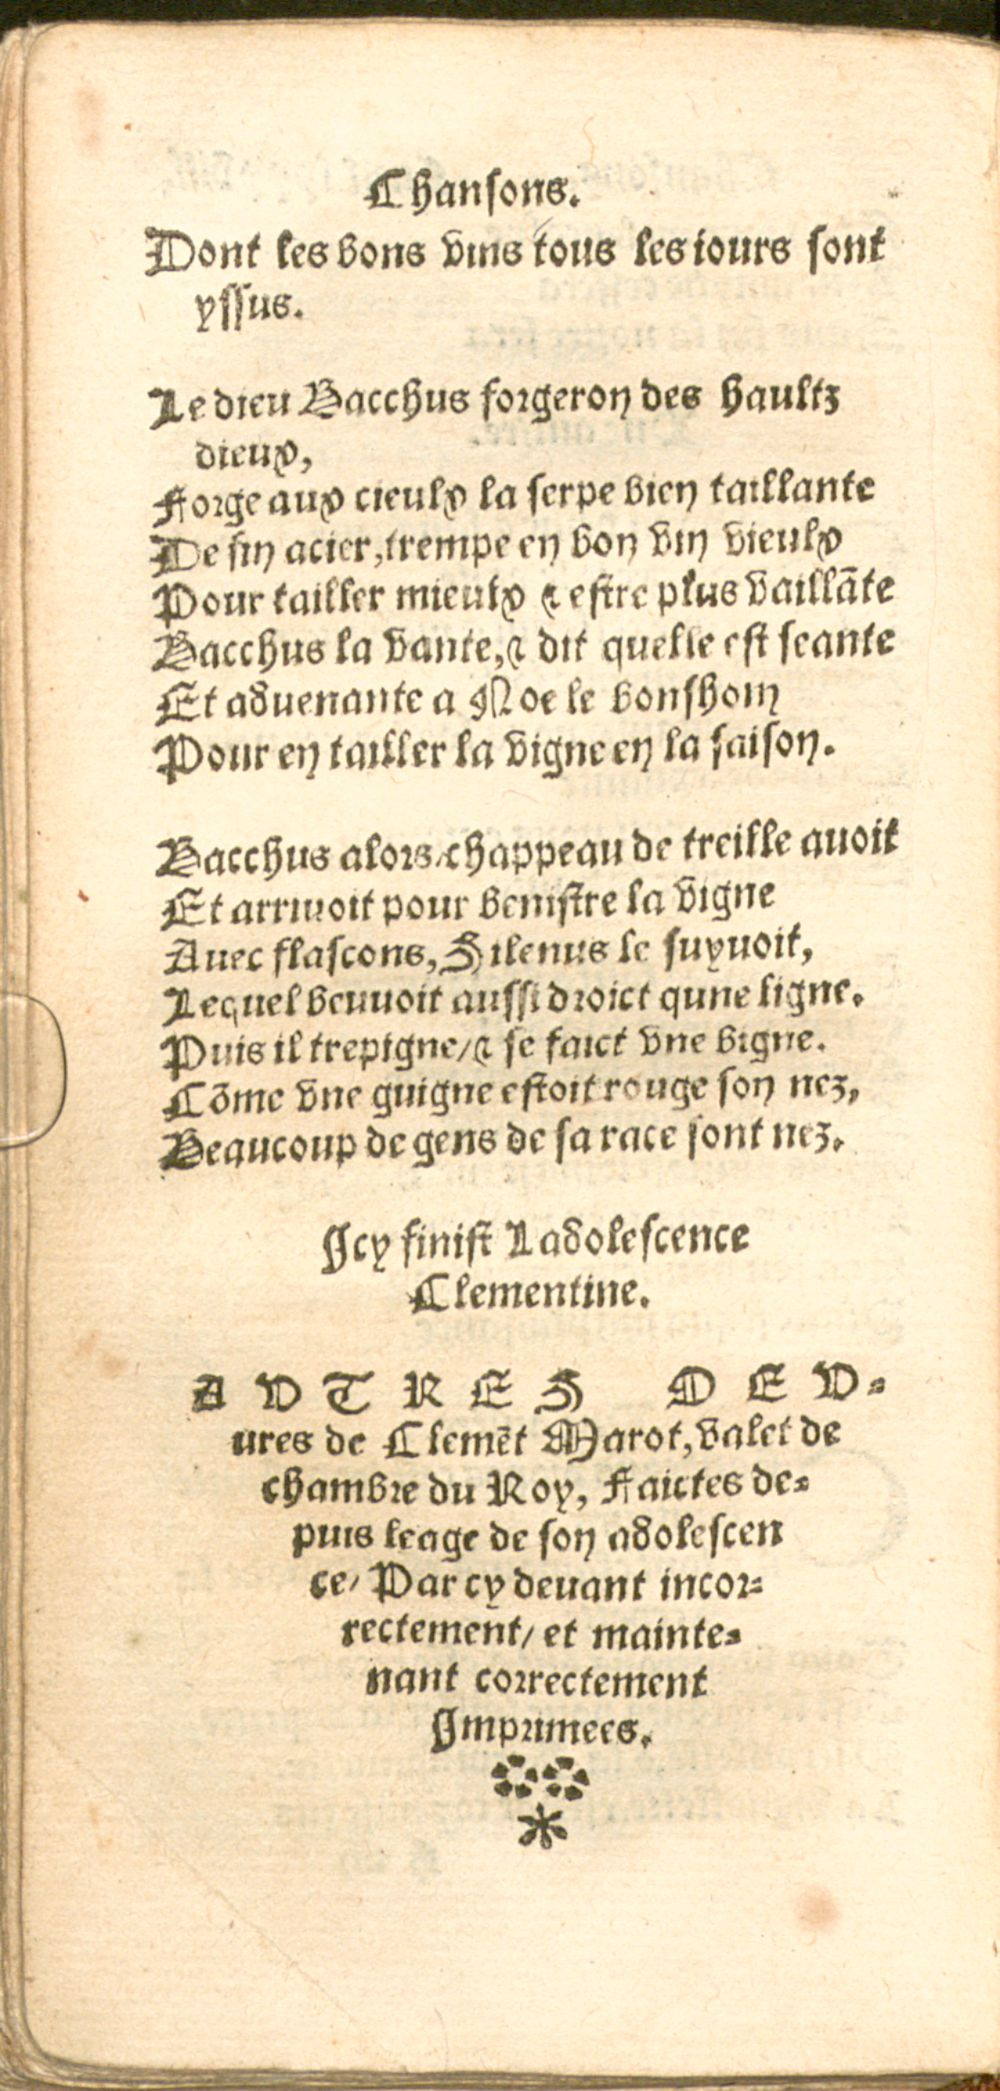 Chansons.
Dont les bons vins tous les iours sont
yssus.
Le dieu Bacchus forgeron des haultz
dieux,
Forge aux cieulx la serpe bien taillante
De fin acier, trempe en bon vin vieulx
Pour tailler mieulx & estre plus vaillāte
Bacchus la vante, & dit quelle est seante
Et aduenante a Noe le bonshom
Pour en tailler la vigne en la saison.
Bacchus alors/chappeau de treille auoit
Et arriuoit pour benistre la vigne
Auec flascons, Silenus le suyuoit,
Lequel beuuoit aussi droict qune ligne.
Puis il trepigne/& se faict vne bigne.
Cōme vne guigne estoit rouge son nez,
Beaucoup de gens de sa race sont nez.
Icy finist Ladolescence
Clementine.
AVTRES OEV-
ures de Clemēt Marot, valet de
chambre du Roy, Faictes de-
puis leage de son adolescen
ce/ Par cy deuant incor-
rectement/ et mainte-
nant correctement
Imprimees.